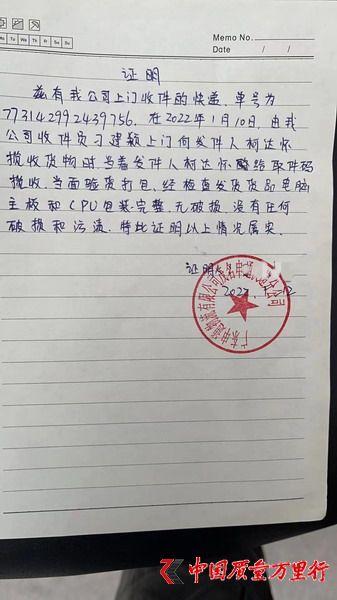 Mo Tu We Th Fr Sa Su
Memo No.
Date / /
证明
兹有我公司上门收件的快递，单号为
773142992439756. 在2022年1月10日，由我
公司收件员刁建颖上门向发件人柯达怀
揽收货物时当着发件人柯达怀 给取件码
揽收，当面验货打包，经检查发货货品电脑
主板和CPU包装完整，无破损，没有任何
破损和污渍，特此证明以上情况属实。
证明
2022
广东申通物流有限公司茂名申通 分公司
中国质量万里行